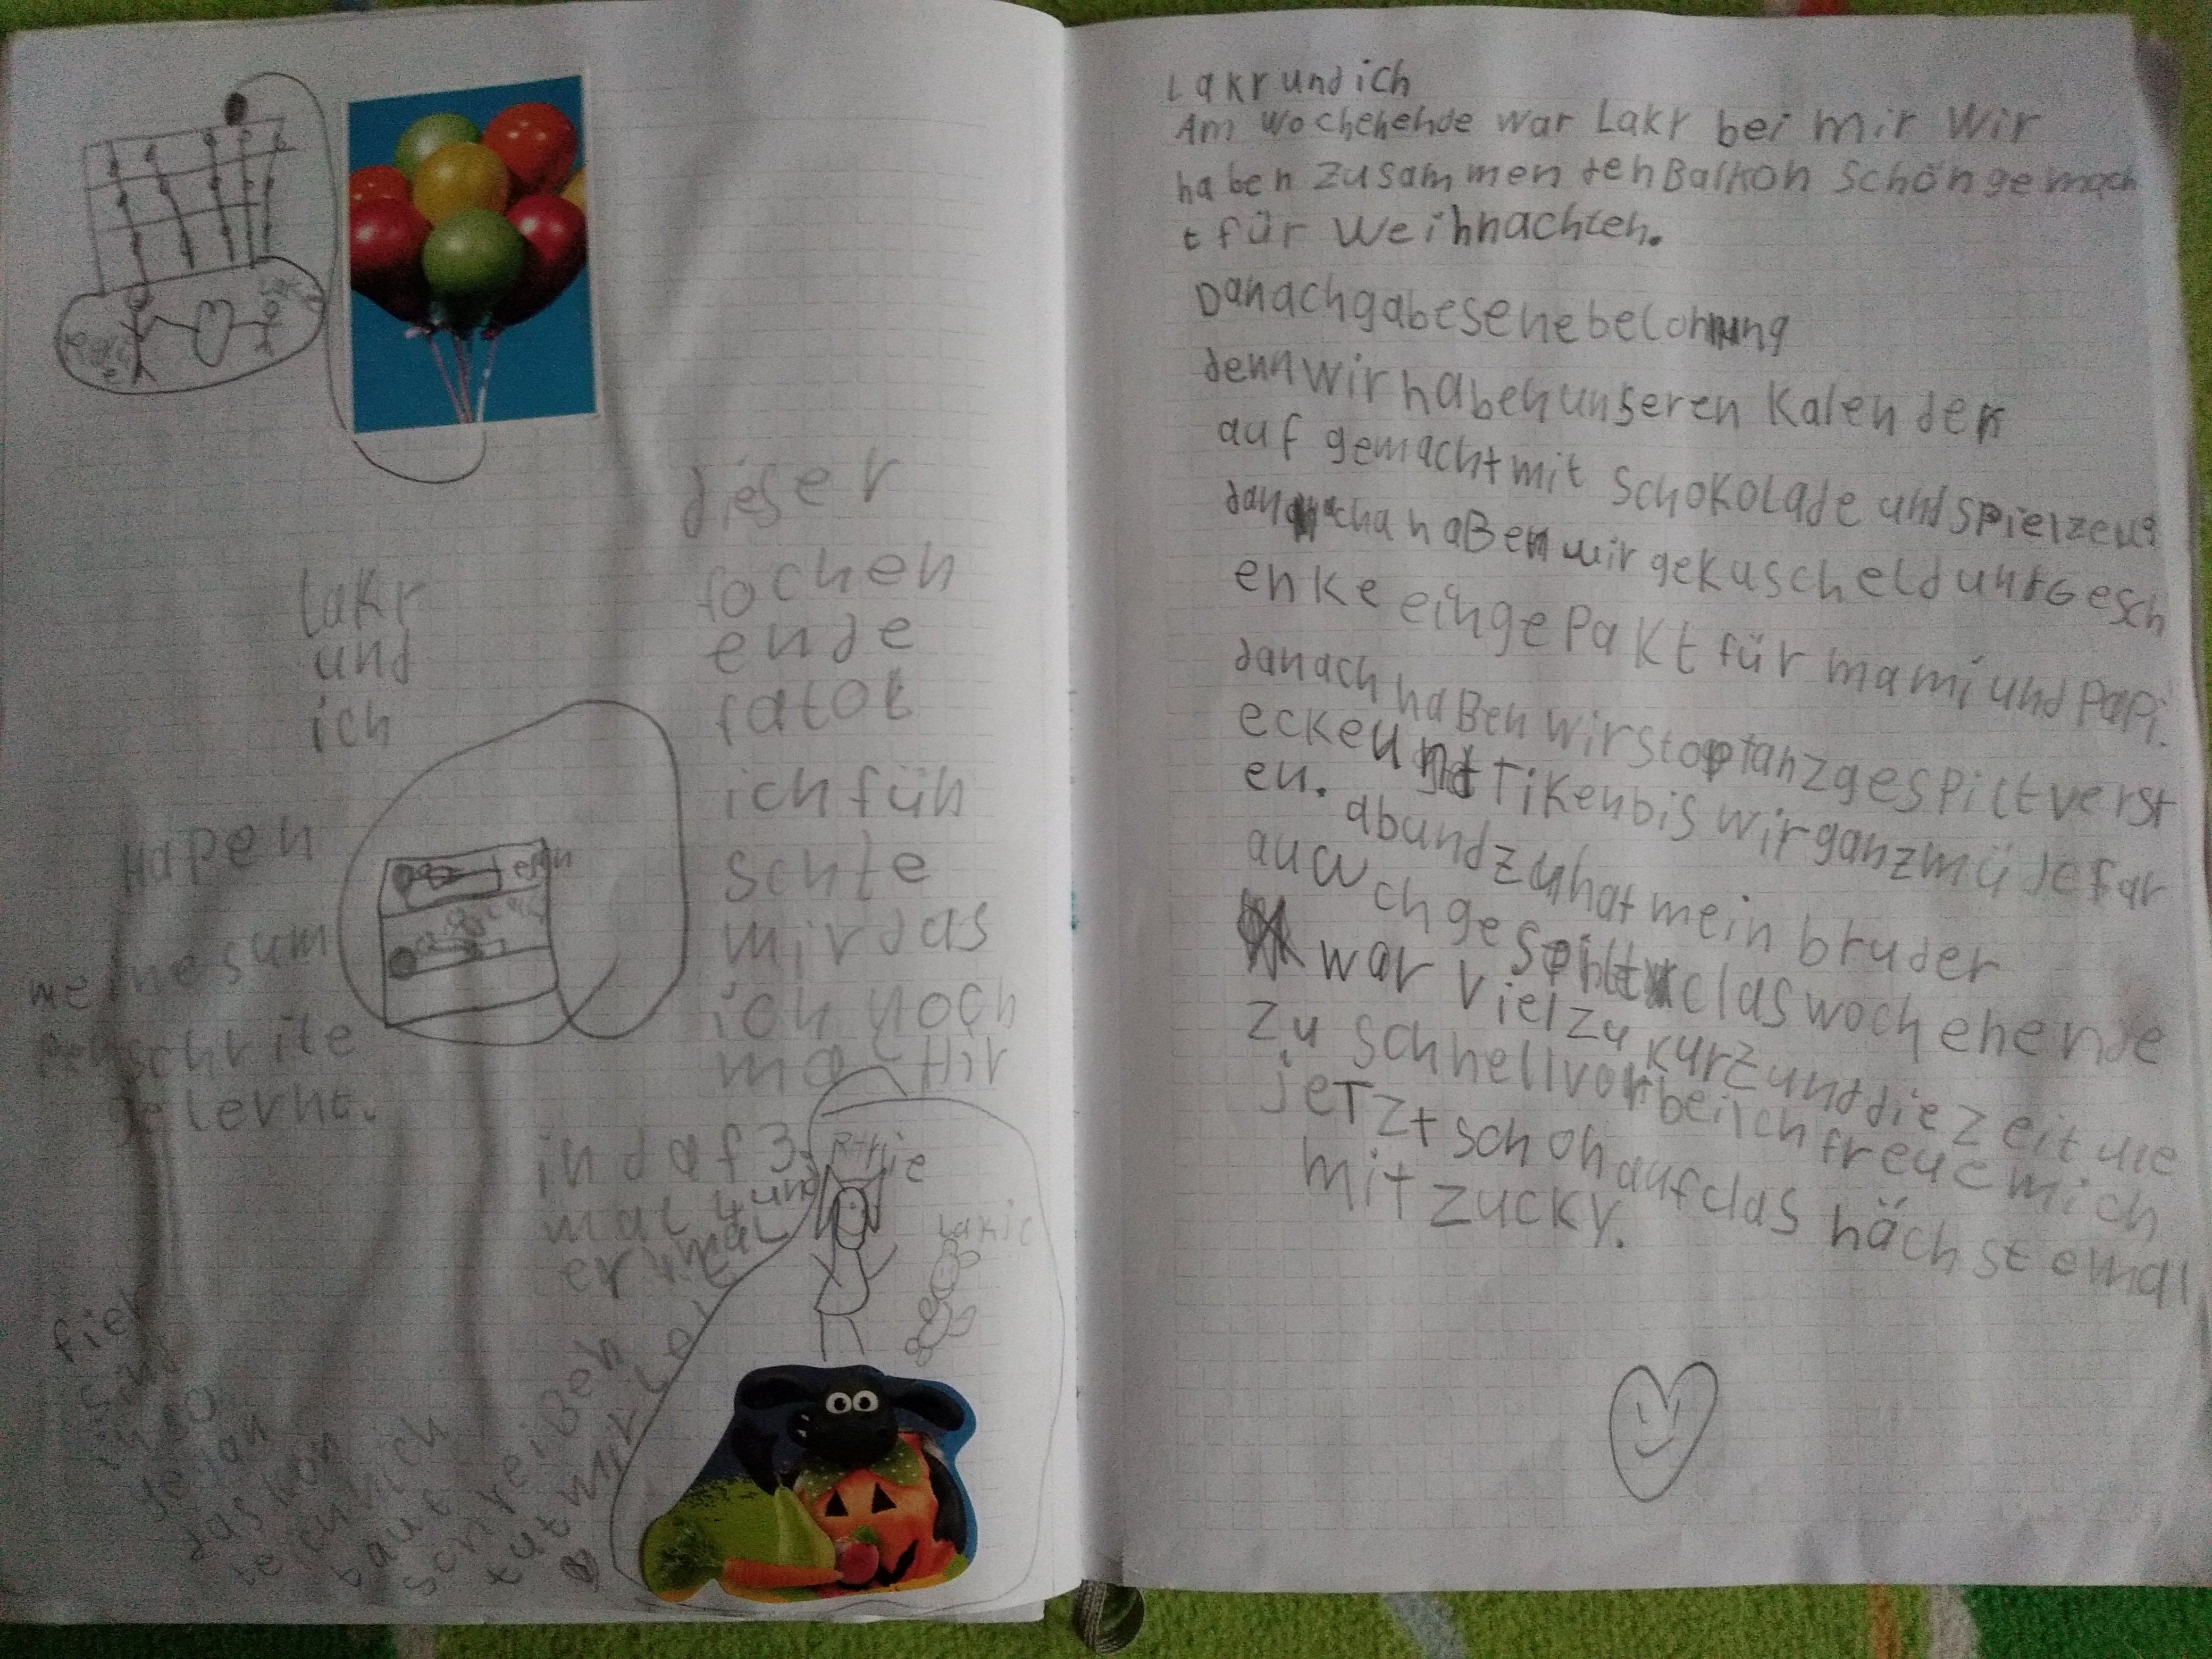 dieser
fochen
ende
fatol
ichfüh
schte
mirdas
ich noch
mal Hir
in daf 3.
mal 4 und
er 4 mal
lakr
und
ich
Hapen
meine sum
penschrite
gelernt.
fier
sind
das kon
te ich nich
baut
schreißen
tut mir lei
Lakr und ich
Am wochenende war Lakr bei mir Wir
haben Zusammen den Balkon Schön gemach
t für Weihnachten.
Danachgabesenebelonung
dennwirhabenunseren Kalender
auf gemachtmit SchokoLade undspielzeug
danachahaBenwirgekuscheldundGesch
enke eingePaKt für mami und Papi.
danach haBen wirstoptanzgespiltverst
eckeundTikenbis wirganzmüdefar
en. abundzuhat mein bruder
auch gespilt claswochenende
war vielzu kurzunddiezeit
zu schnellvorbeiichfreuemich
jeTzt schonaufclas nächstemal
mit zucky.